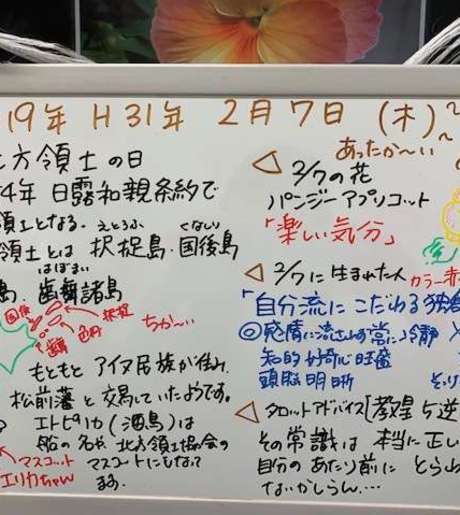 19年 H31年 2月7日 (木)
あったか〜い
方領土の日
4年 日露和親条約で
領土となる。
えとろふ くなしり
領土とは 択捉島・国後島
はぼまい
島、歯舞諸島
国後 択捉
歯舞 色丹
ちか〜い
もともと アイヌ民族が住み、
松前藩と 交易していたようです。
エトピリカ(海鳥)は
船の名や 北方領土協会の
マスコット マスコットにもなって
エリカちゃん ます。
2/7の花
パンジーアプリコット
「楽しい気分」
2/7に生まれた人 カラー赤
「自分流にこだわる独創
◎感情に流されず常に冷静
知的好奇心旺盛
頭脳明晰
タロットアドバイス【教皇 逆
その常識は 本当に正しい
自分の あたり前に とらわ
ないかしらん…